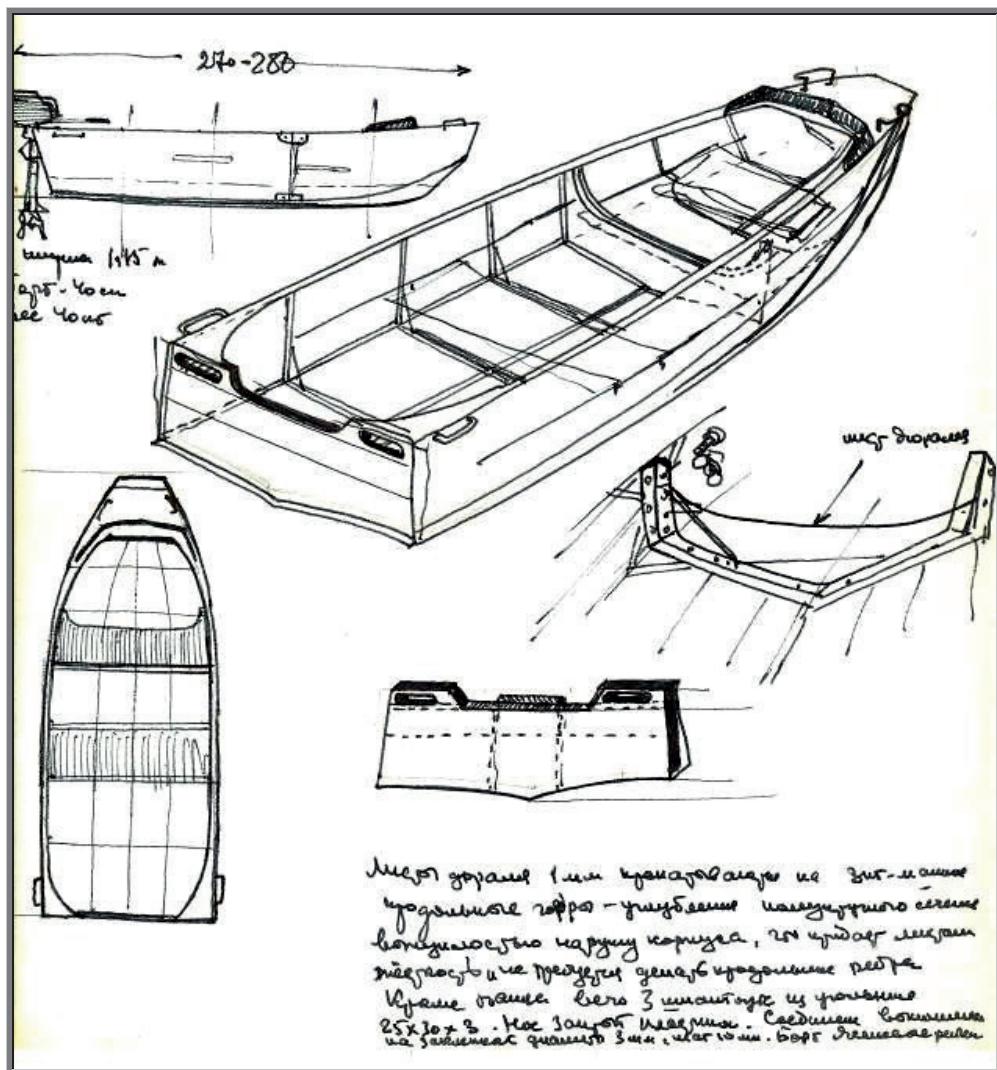 270-280
ширина 1,15 м
борт-40см
вес 40кг
лист дюраля
Листы дюраля 1 мм прокатываются на зиг-машине
продольные гофры - углубления полукруглого сечения
выпуклостью наружу корпуса, что придаёт листам
жёсткость и не требуется делать продольные рёбра
Кроме того всего 3 шпангоута из угольника
25х30х3. Нос
на заклёпках диаметр 3 мм, шаг 10 мм. Борт